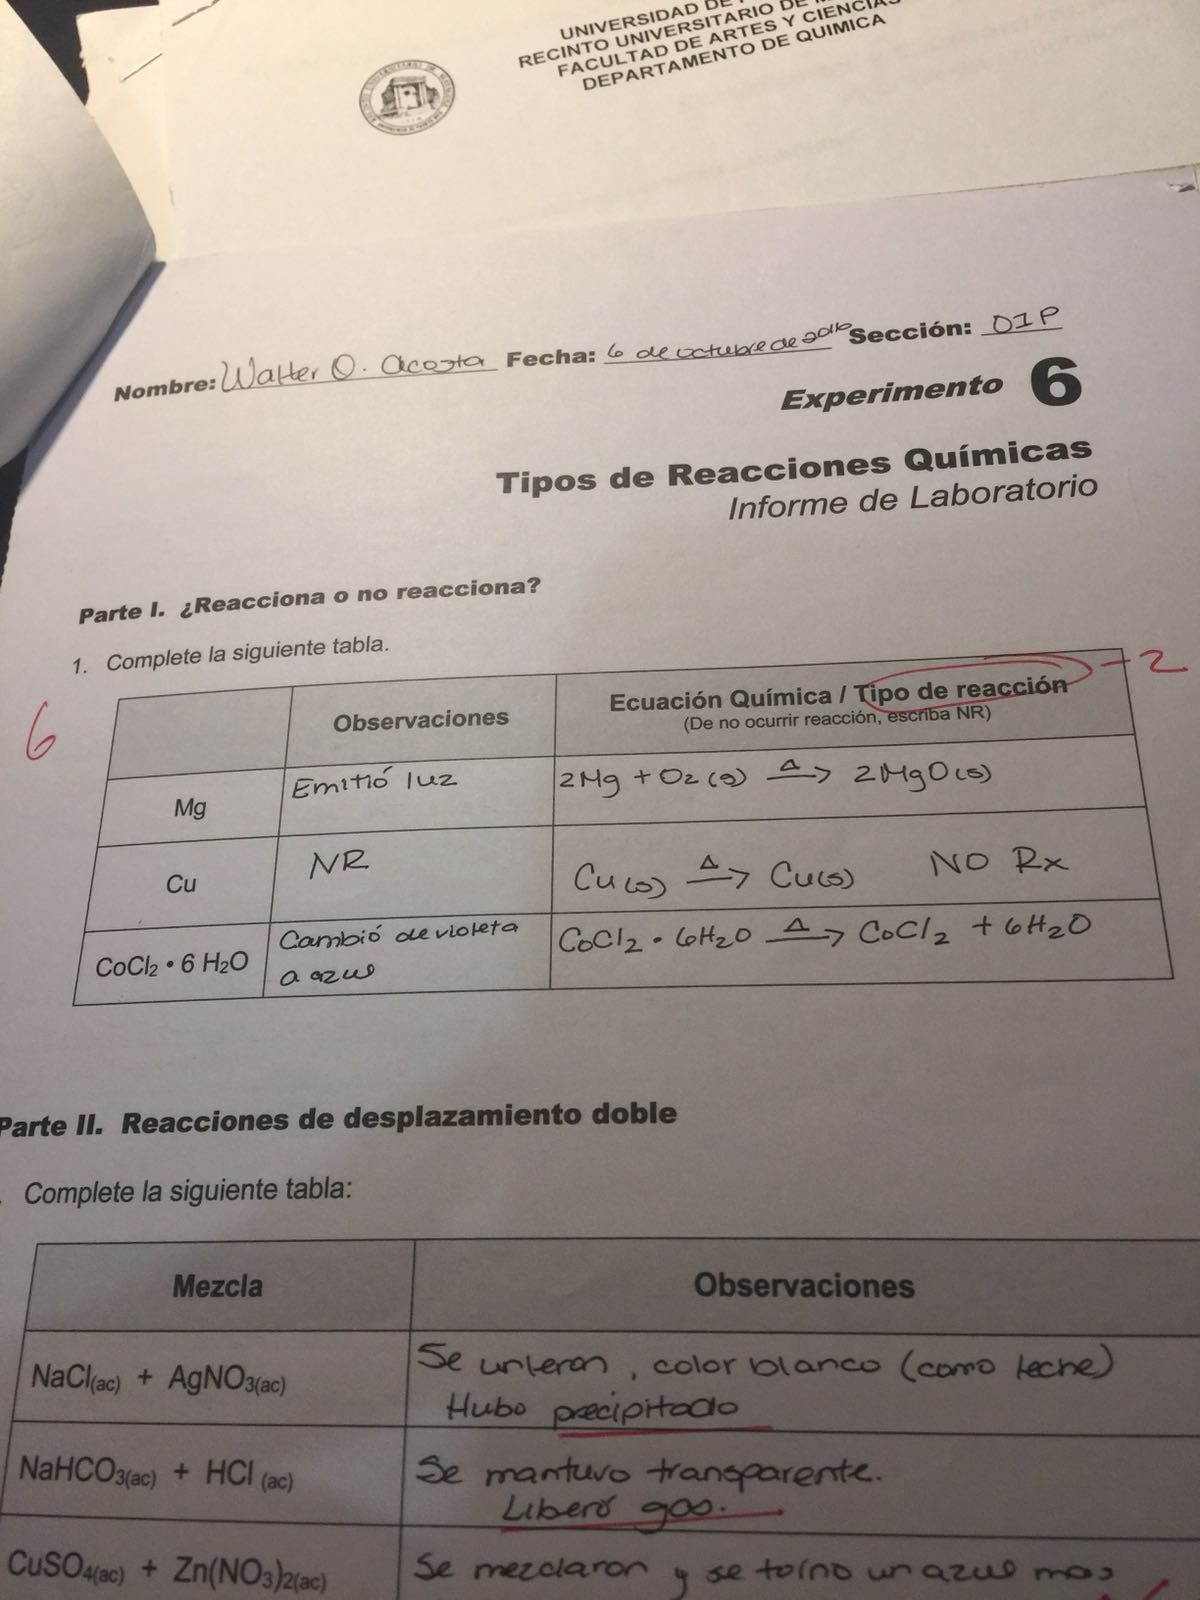 UNIVERSIDAD DE
RECINTO UNIVERSITARIO DE
FACULTAD DE ARTES Y CIENCIAS
DEPARTAMENTO DE QUIMICA
Nombre: Walter O. Acosta Fecha: 6 de octubre de 2016 Sección: 01P
Experimento 6
Tipos de Reacciones Químicas
Informe de Laboratorio
Parte I. ¿Reacciona o no reacciona?
1. Complete la siguiente tabla.
-2
6
Observaciones
Ecuación Química / Tipo de reacción
(De no ocurrir reacción, escriba NR)
Mg
Emitió luz
2Mg + O2 (g) Δ→ 2MgO(s)
Cu
NR
Cu(s) Δ→ Cu(s) NO Rx
CoCl2 • 6 H2O
Cambió de violeta
a azul
CoCl2 • 6H2O Δ→ CoCl2 + 6H2O
Parte II. Reacciones de desplazamiento doble
. Complete la siguiente tabla:
Mezcla
Observaciones
NaCl(ac) + AgNO3(ac)
Se unieron, color blanco (como leche)
Hubo precipitado
NaHCO3(ac) + HCl (ac)
Se mantuvo transparente.
Liberó gas.
CuSO4(ac) + Zn(NO3)2(ac)
Se mezclaron y se torno un azul mas